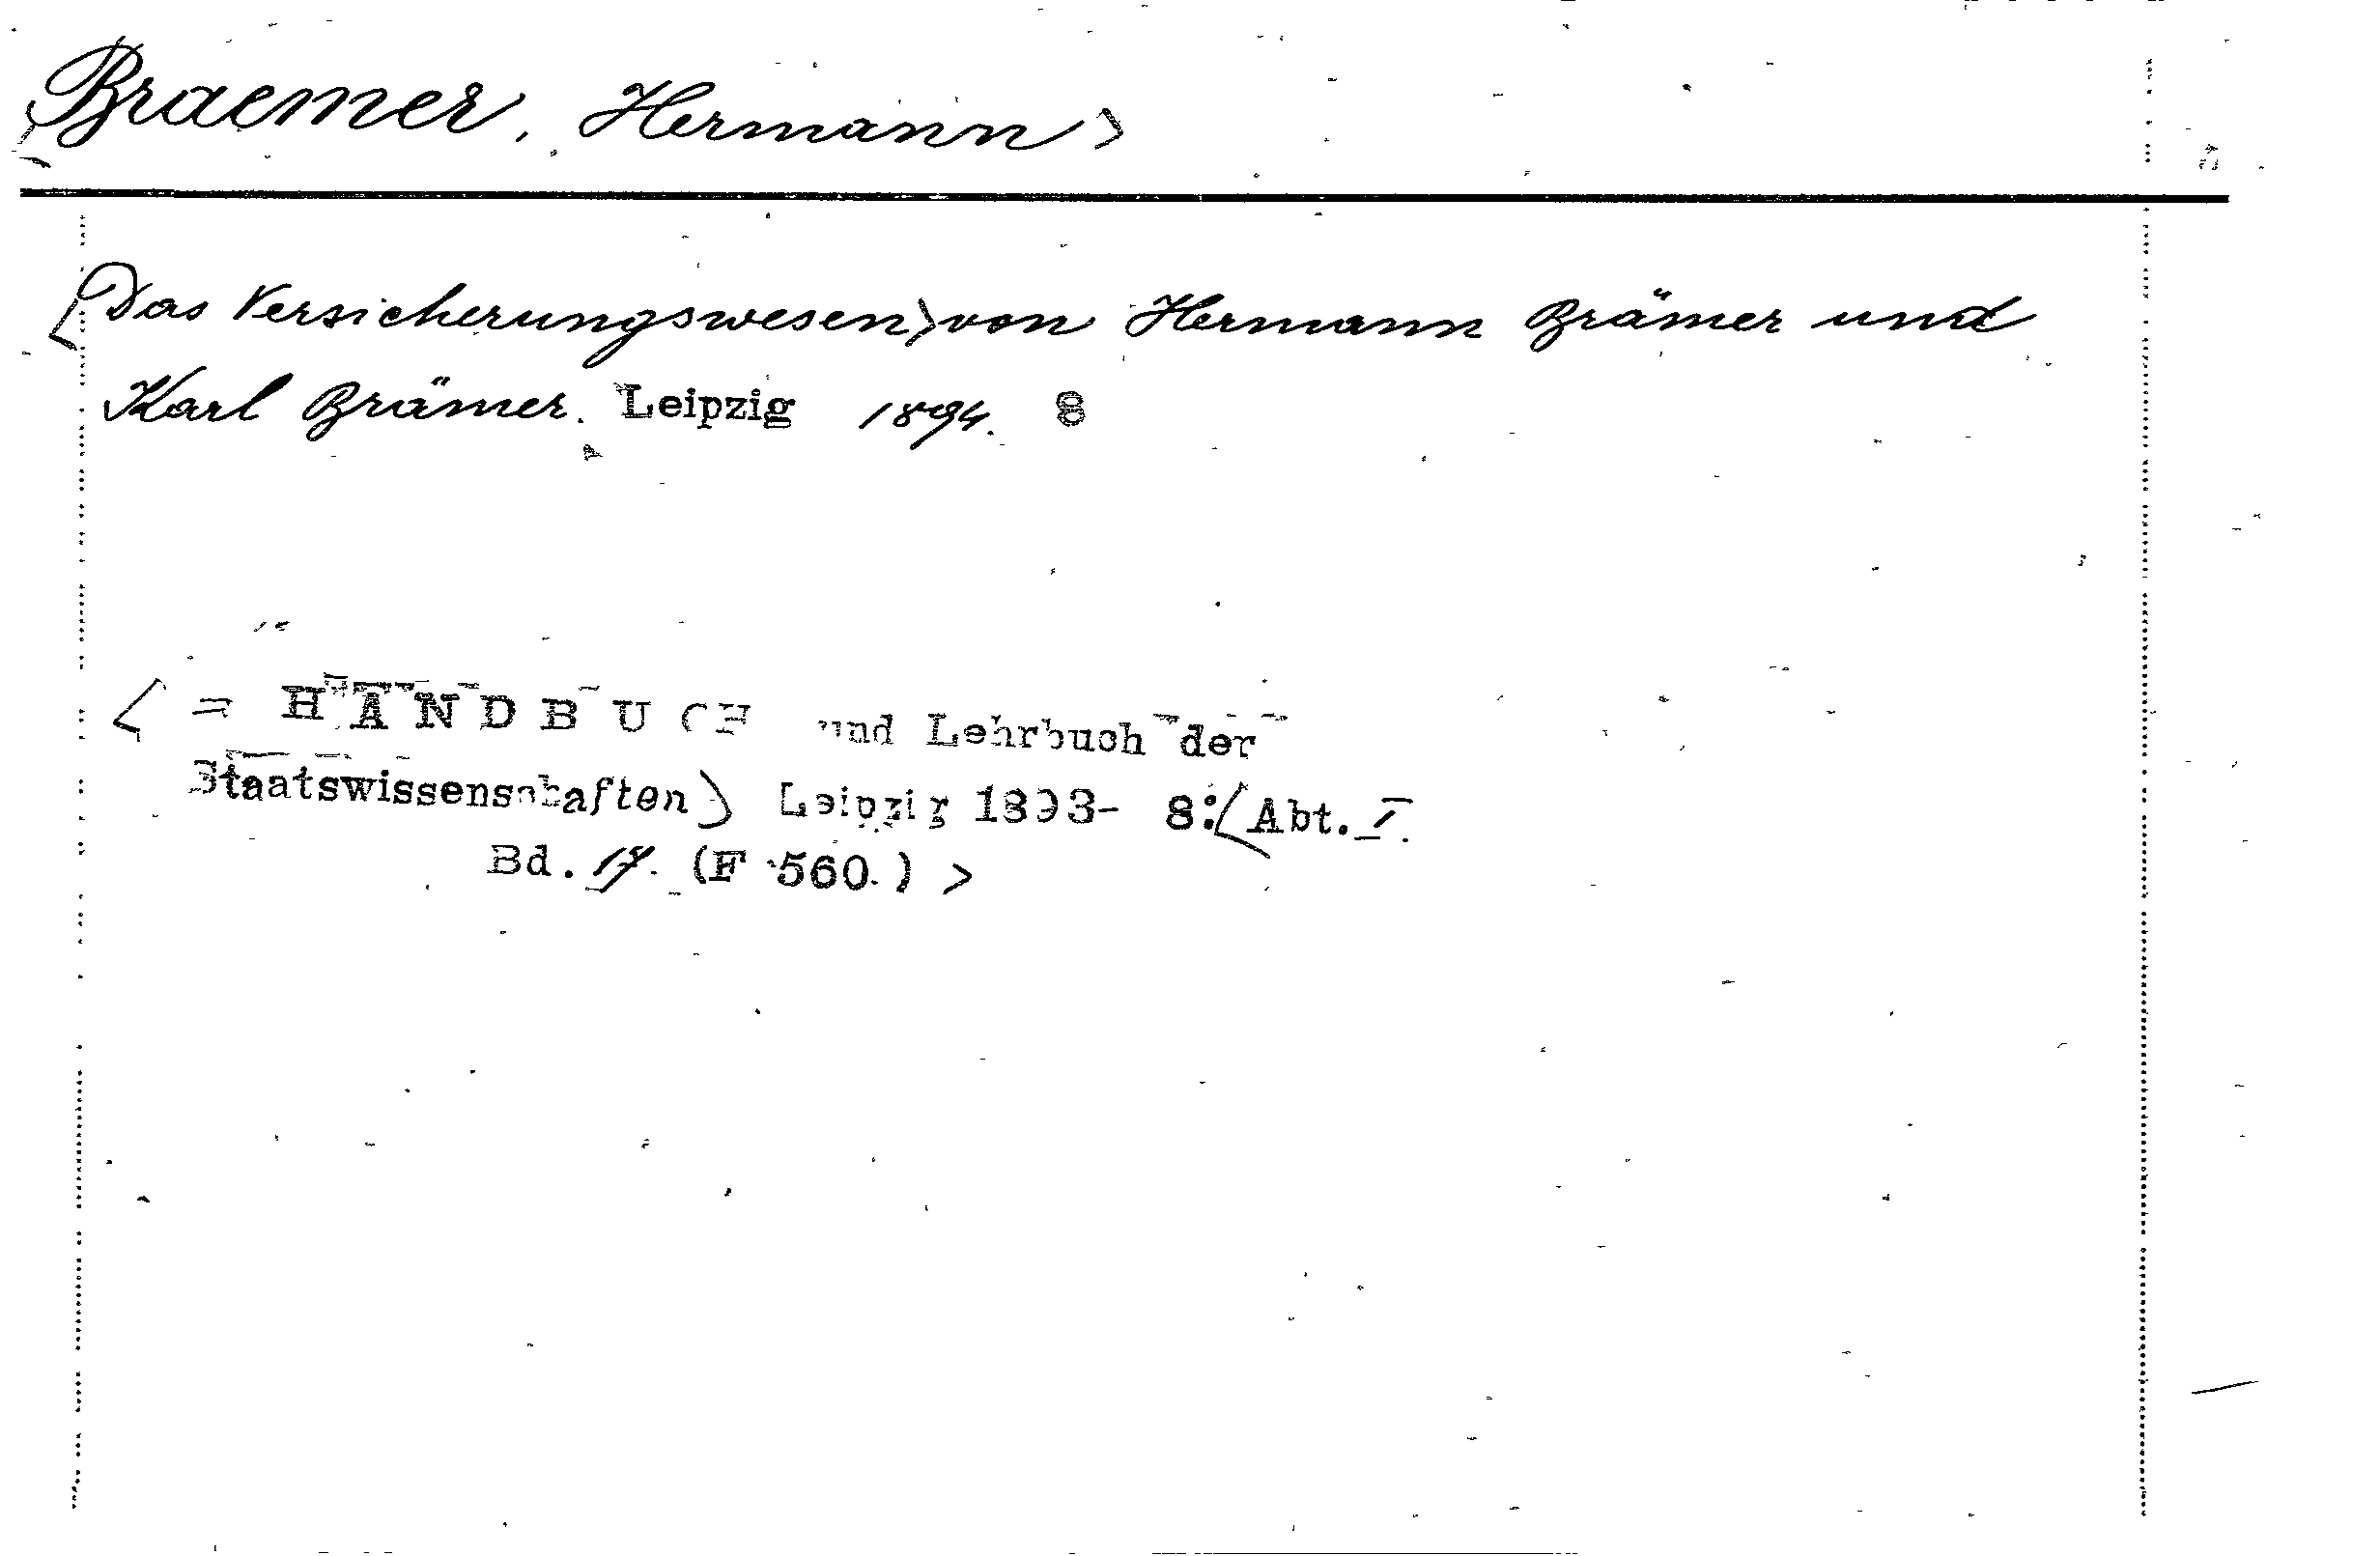 <Braemer, Hermann>
<Das Versicherungswesen> von Hermann Brämer und
Karl Brämer. Leipzig 1894. 8
< = HANDBUCH und Lehrbuch der
Staatswissenschaften> Leipzig 1893- 8:<Abt. I.
Bd. 17. (F 560.) >